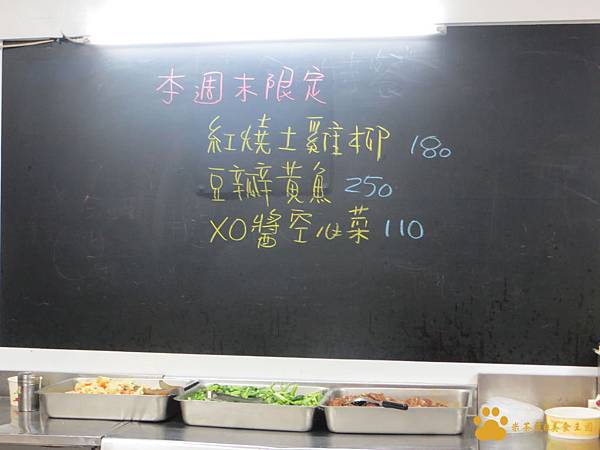 本週末限定
紅燒土雞柳 180
豆瓣黃魚 250
XO醬空心菜 110